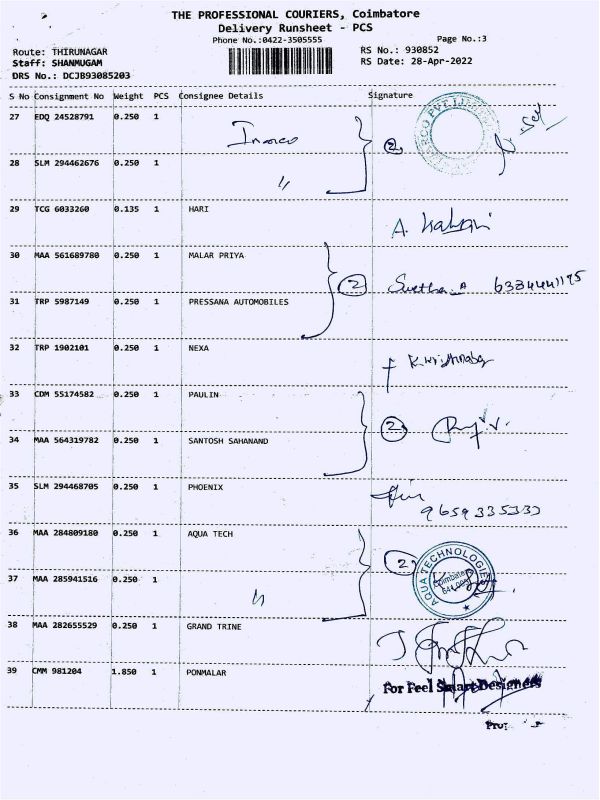 THE PROFESSIONAL COURIERS, Coimbatore
Delivery Runsheet - PCS
Phone No.:0422-3505555
Page No.:3
Route: THIRUNAGAR
RS No.: 930852
Staff: SHANMUGAM
RS Date: 28-Apr-2022
DRS No.: DCJB93085203
S No Consignment No Weight PCS Consignee Details Signature
27 EDQ 24528791 0.250 1
2
28 SLM 294462676 0.250 1 "
29 TCG 6033260 0.135 1 HARI
A.
30 MAA 561689780 0.250 1 MALAR PRIYA
2 Swetha A 6384441195
31 TRP 5987149 0.250 1 PRESSANA AUTOMOBILES
32 TRP 1902101 0.250 1 NEXA
33 CDM 55174582 0.250 1 PAULIN
2
34 MAA 564319782 0.250 1 SANTOSH SAHANAND
35 SLM 294468705 0.250 1 PHOENIX
9659335333
36 MAA 284809180 0.250 1 AQUA TECH
2 AQUA TECHNOLOGIES
Coimbatore
37 MAA 285941516 0.250 1 "
38 MAA 282655529 0.250 1 GRAND TRINE
39 CMM 981204 1.850 1 PONMALAR
For Feel Smart Designers